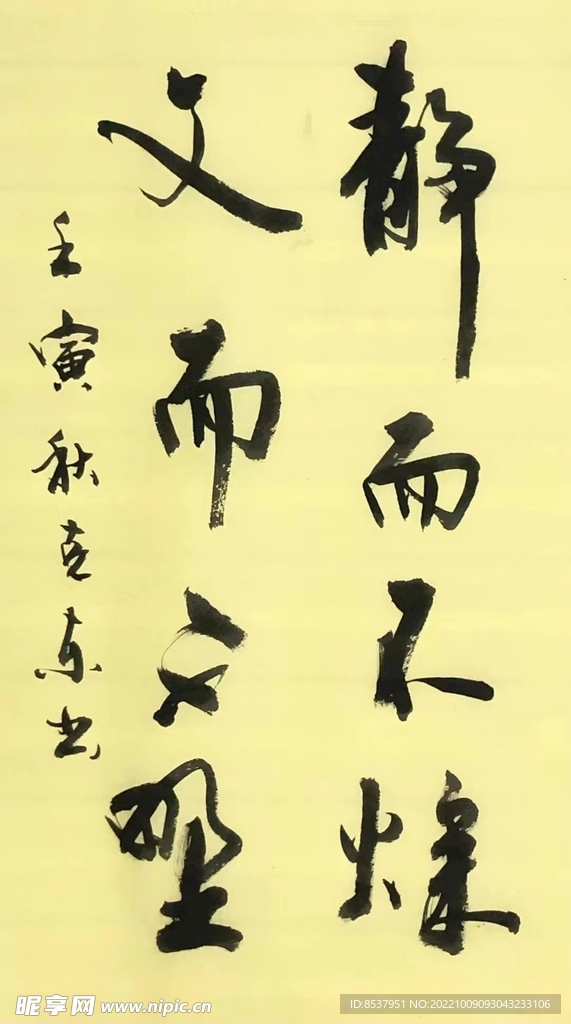 静而不燥
文而不野
壬寅秋克东书
昵享网 www.nipic.cn
ID:8537951 NO:20221009093043233106